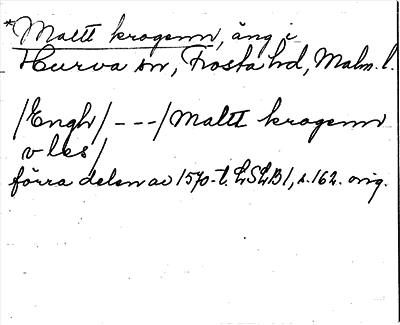 *Maltt krogenn, äng i
Hurva sn, Frosta hd, Malm. l.
/Engh/ - - - /Maltt krogenn
v les/
förra delen av 1570-t. LSLB 1, s. 162. orig.